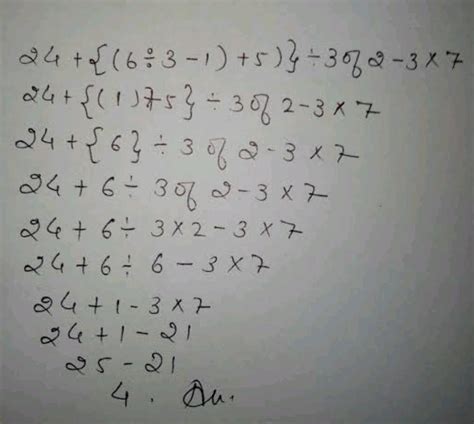 24 + {(6 ÷ 3 - 1) + 5)} ÷ 3 of 2 - 3 × 7
24 + {(1) + 5} ÷ 3 of 2 - 3 × 7
24 + {6} ÷ 3 of 2 - 3 × 7
24 + 6 ÷ 3 of 2 - 3 × 7
24 + 6 ÷ 3 × 2 - 3 × 7
24 + 6 ÷ 6 - 3 × 7
24 + 1 - 3 × 7
24 + 1 - 21
25 - 21
4 . An.